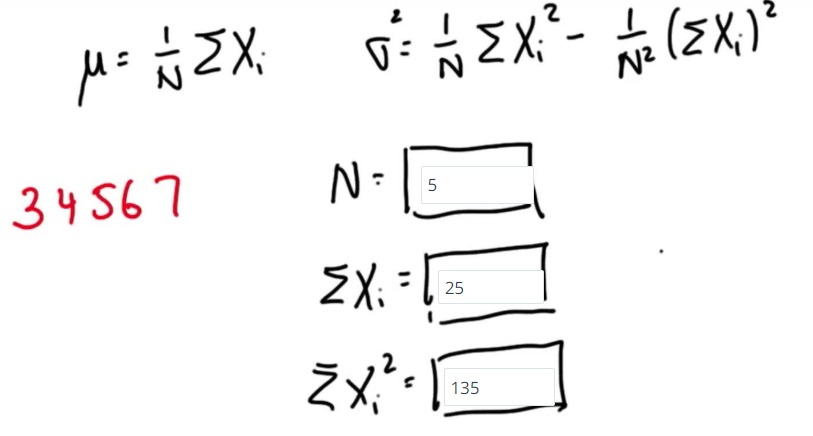 μ = 1/N ΣXᵢ σ² = 1/N ΣXᵢ² - 1/N² (ΣXᵢ)²
N = 5
3 4 5 6 7
ΣXᵢ = 25
ΣXᵢ² = 135